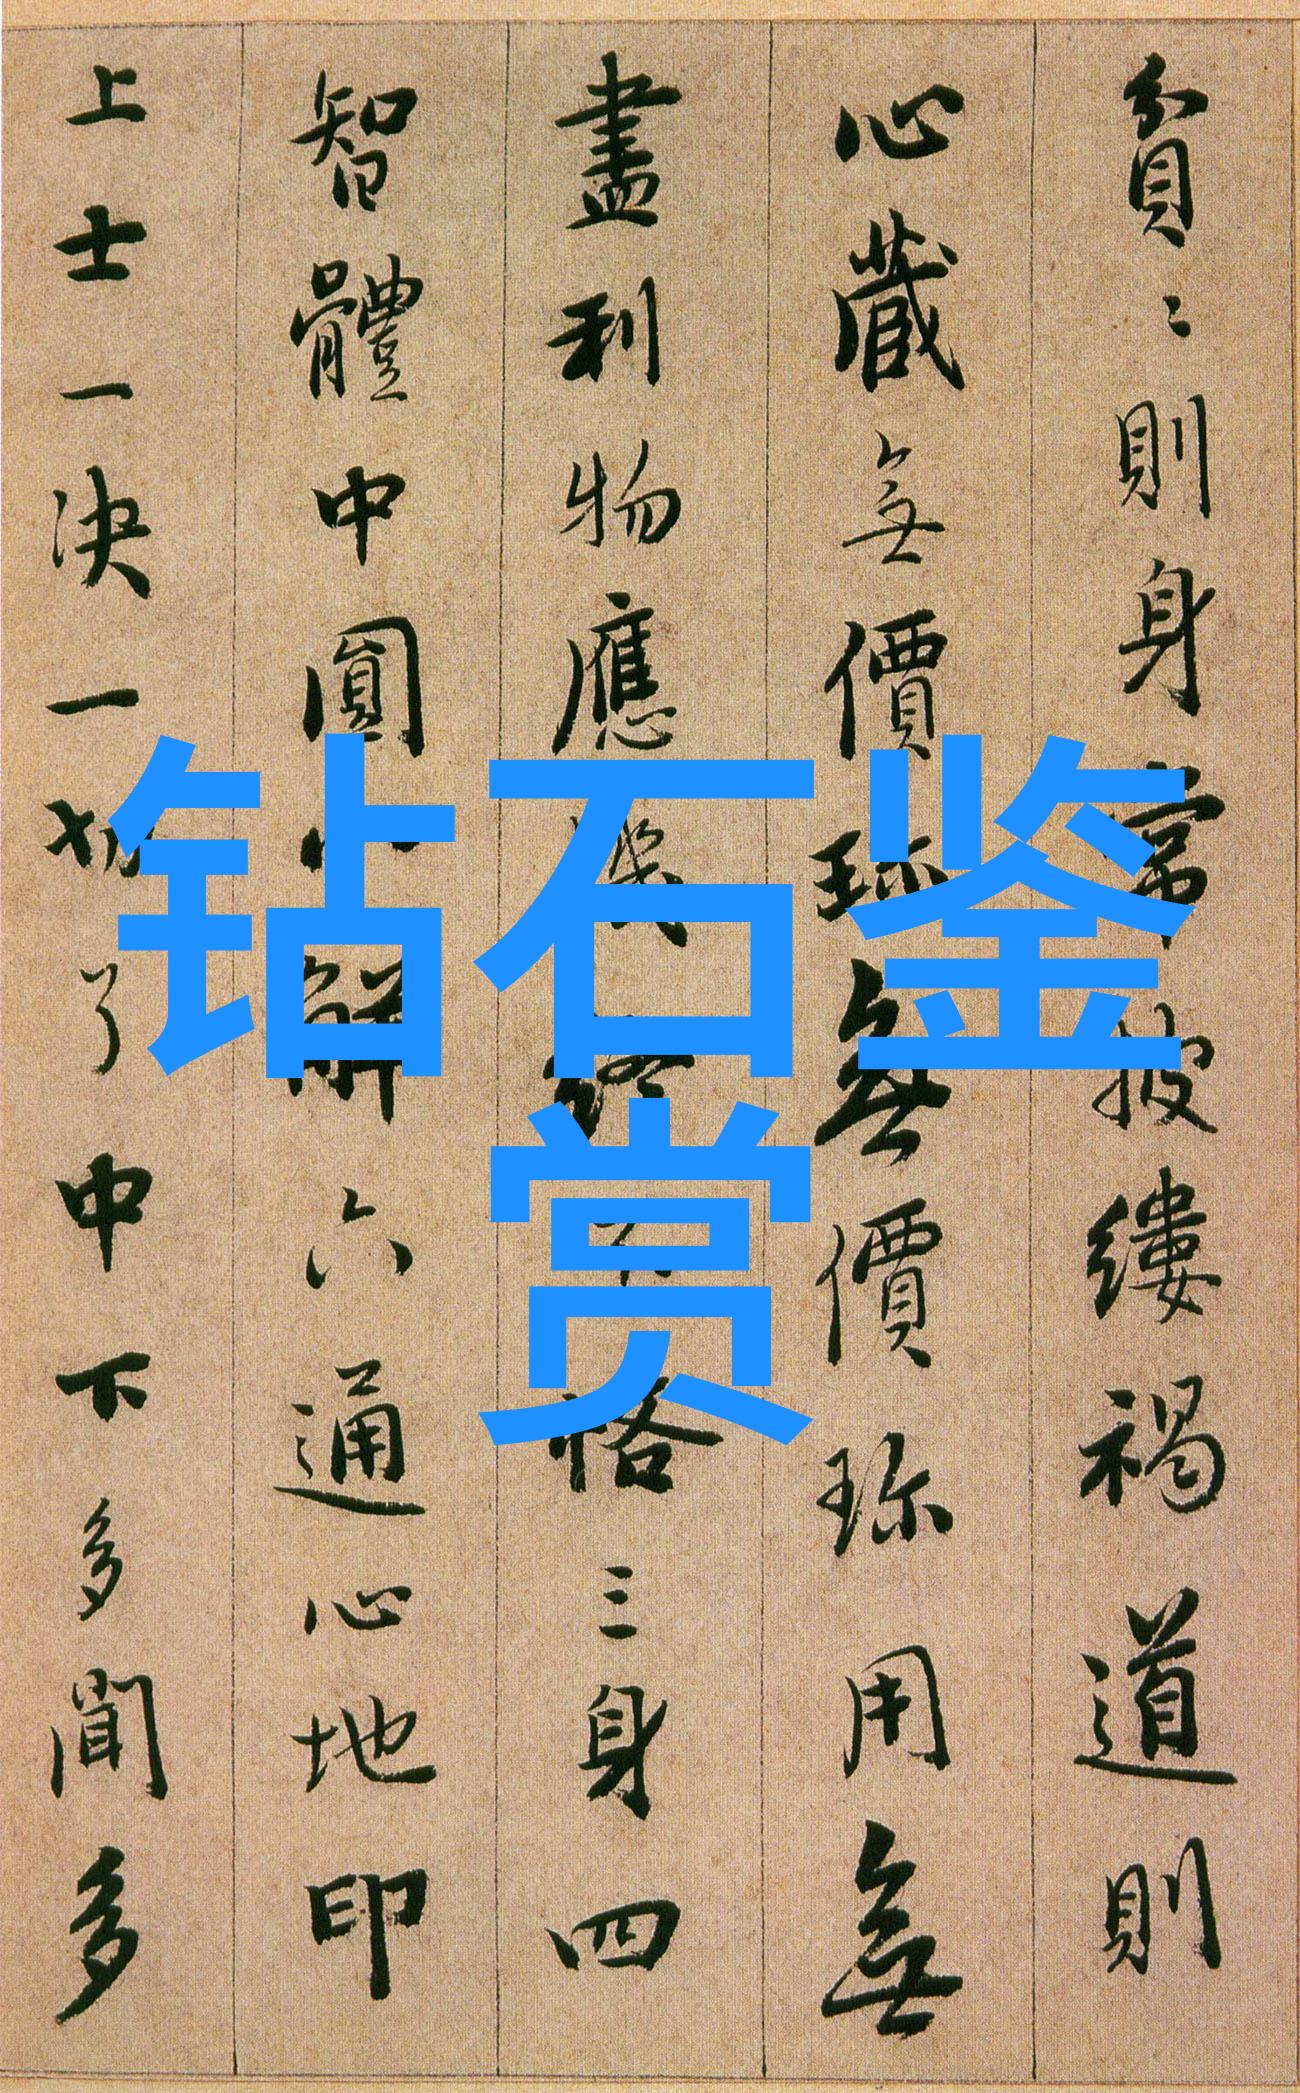 貧〻則身常披縷褐道則
心藏無價珎無價珎用無
盡利物應機終恪三身四
智體中圓解六通心地印
上士一决一切了中下多聞多
钻石鉴
赏